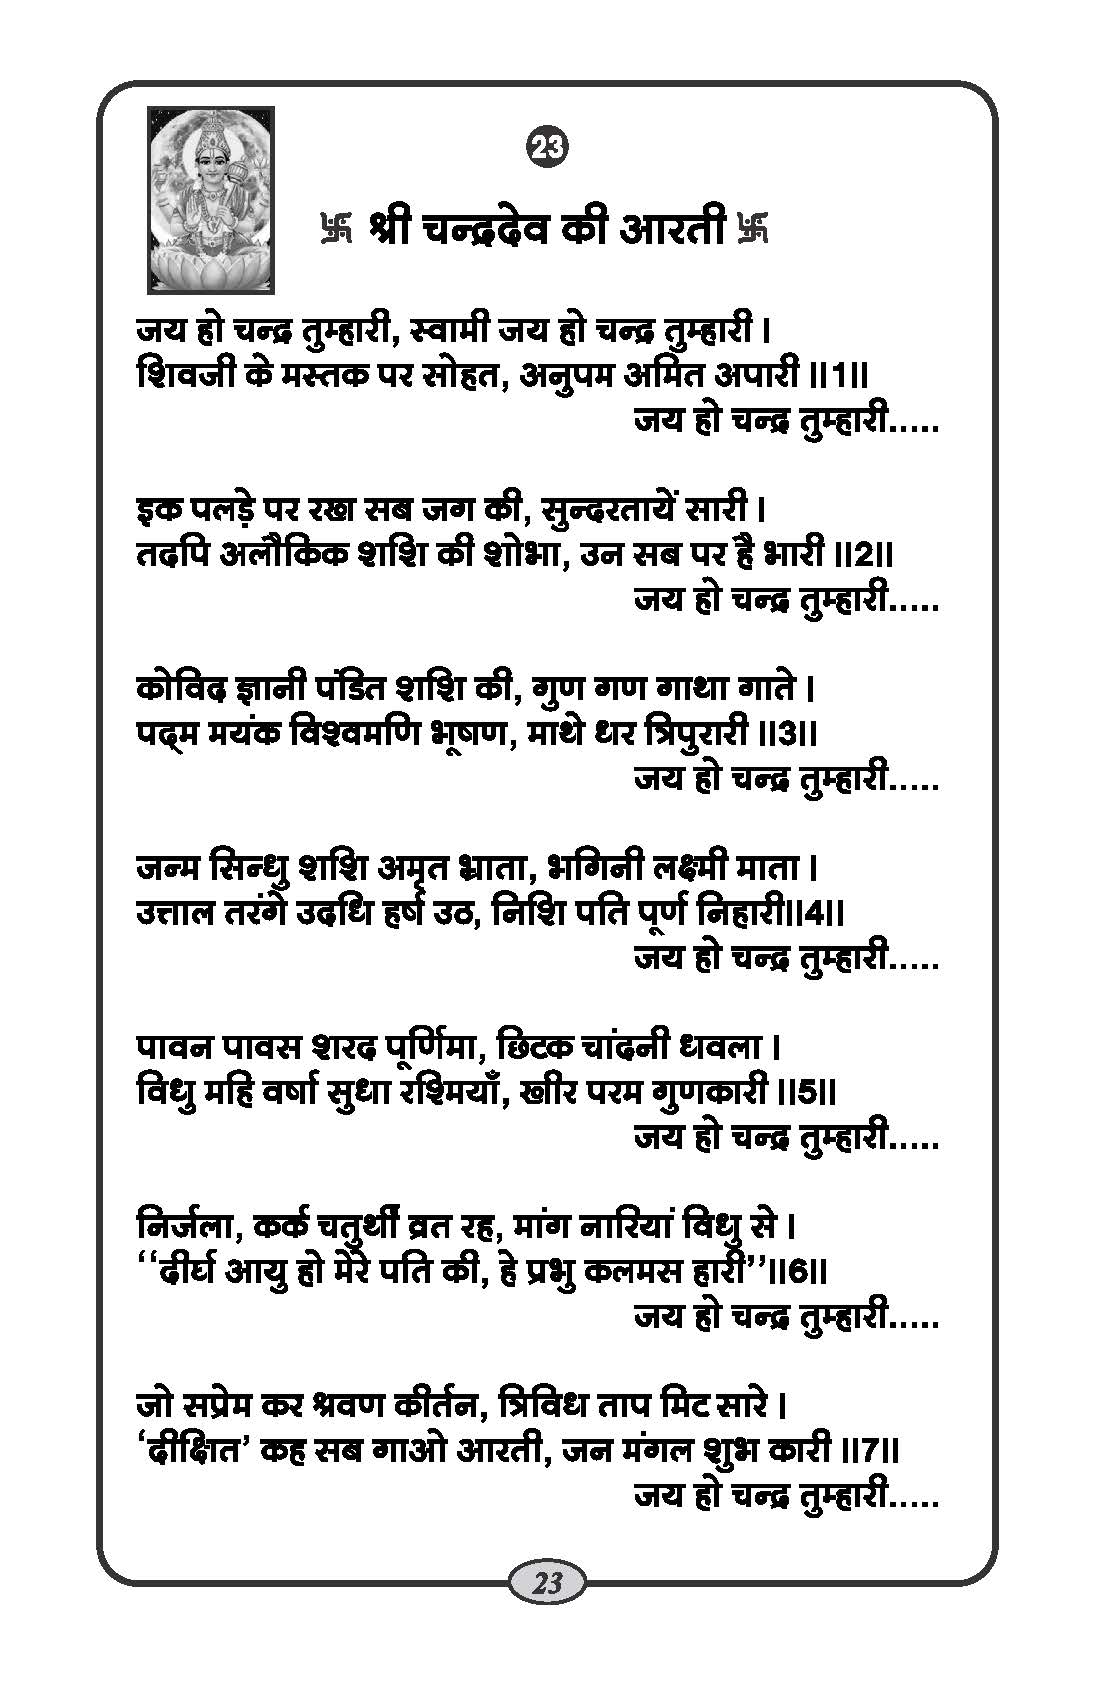 23
卐 श्री चन्द्रदेव की आरती 卐
जय हो चन्द्र तुम्हारी, स्वामी जय हो चन्द्र तुम्हारी ।
शिवजी के मस्तक पर सोहत, अनुपम अमित अपारी ॥1॥
जय हो चन्द्र तुम्हारी.....
इक पलड़े पर रखा सब जग की, सुन्दरतायें सारी ।
तदपि अलौकिक शशि की शोभा, उन सब पर है भारी ॥2॥
जय हो चन्द्र तुम्हारी.....
कोविद ज्ञानी पंडित शशि की, गुण गण गाथा गाते ।
पद्‌म मयंक विश्वमणि भूषण, माथे धर त्रिपुरारी ॥3॥
जय हो चन्द्र तुम्हारी.....
जन्म सिन्धु शशि अमृत भ्राता, भगिनी लक्ष्मी माता ।
उत्ताल तरंगे उदधि हर्ष उठ, निशि पति पूर्ण निहारी॥4॥
जय हो चन्द्र तुम्हारी.....
पावन पावस शरद पूर्णिमा, छिटक चांदनी धवला ।
विधु महि वर्षा सुधा रश्मियाँ, खीर परम गुणकारी ॥5॥
जय हो चन्द्र तुम्हारी.....
निर्जला, कर्क चतुर्थी व्रत रह, मांग नारियां विधु से ।
‘‘दीर्घ आयु हो मेरे पति की, हे प्रभु कलमस हारी’’॥6॥
जय हो चन्द्र तुम्हारी.....
जो सप्रेम कर श्रवण कीर्तन, त्रिविध ताप मिट सारे ।
‘दीक्षित’ कह सब गाओ आरती, जन मंगल शुभ कारी ॥7॥
जय हो चन्द्र तुम्हारी.....
23